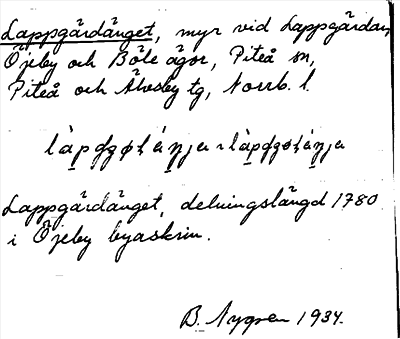 Lappgärdänget, myr vid Lappgärdan,
Öjeby och Böle ägor, Piteå sn,
Piteå och Älvsby tg, Norrb. l.
Lappgärdänget, delningslängd 1780
i Öjeby byaskrin.
B. Nygren 1934.